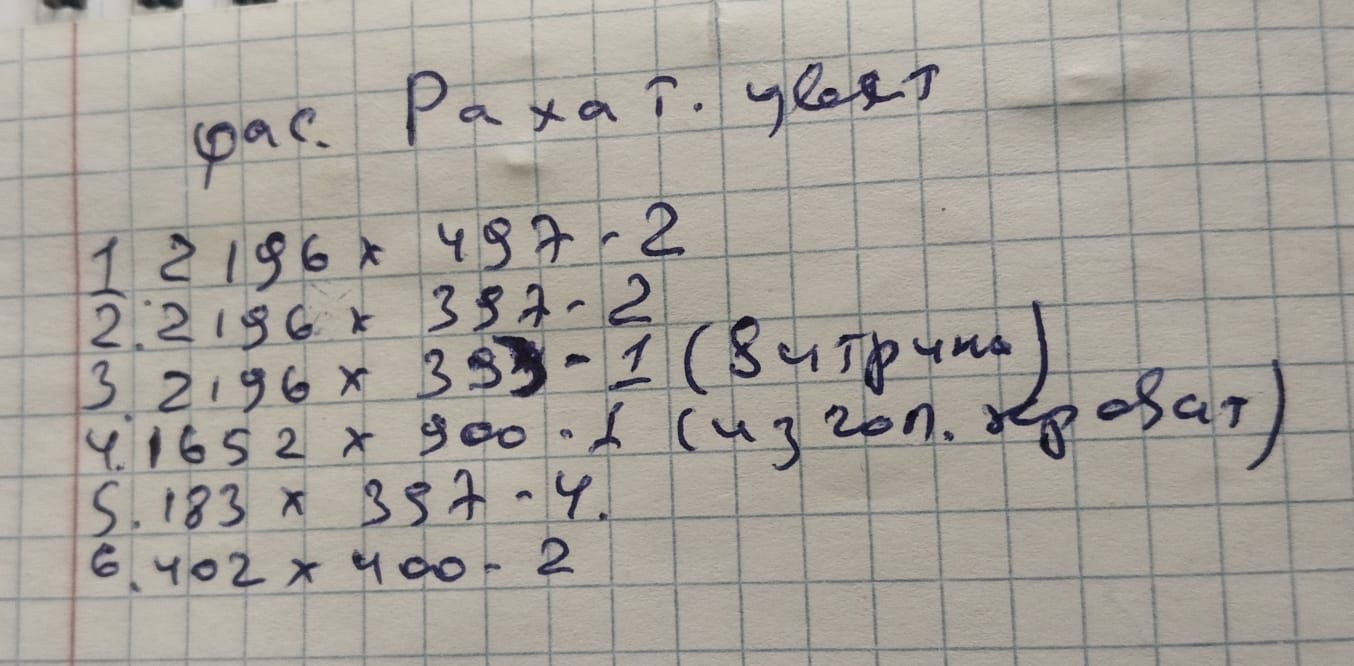 фас. Рахат. цвет
1. 2196 x 497 - 2
2. 2196 x 397 - 2
3. 2196 x 393 - 1 (витрина)
4. 1652 x 900 - 1 (из гол. кроват)
5. 183 x 397 - 4.
6. 402 x 400 - 2